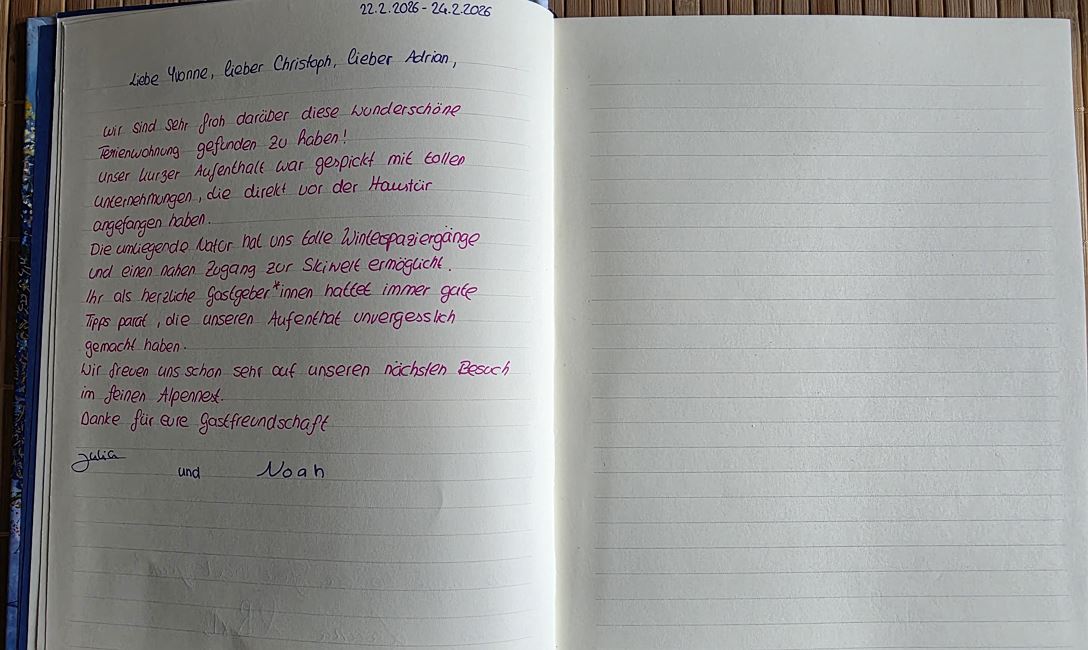 22.2.2026 - 24.2.2026
Liebe Yvonne, lieber Christoph, lieber Adrian,
wir sind sehr froh darüber diese wunderschöne
Ferienwohnung gefunden zu haben!
Unser kurzer Aufenthalt war gespickt mit tollen
Unternehmungen, die direkt vor der Haustür
angefangen haben.
Die umliegende Natur hat uns tolle Winterspaziergänge
und einen nahen Zugang zur Skiwelt ermöglicht.
Ihr als herzliche Gastgeber*innen hattet immer gute
Tipps parat, die unseren Aufenthat unvergesslich
gemacht haben.
Wir freuen uns schon sehr auf unseren nächsten Besuch
im feinen Alpennest.
Danke für eure Gastfreundschaft
Julia
und Noah